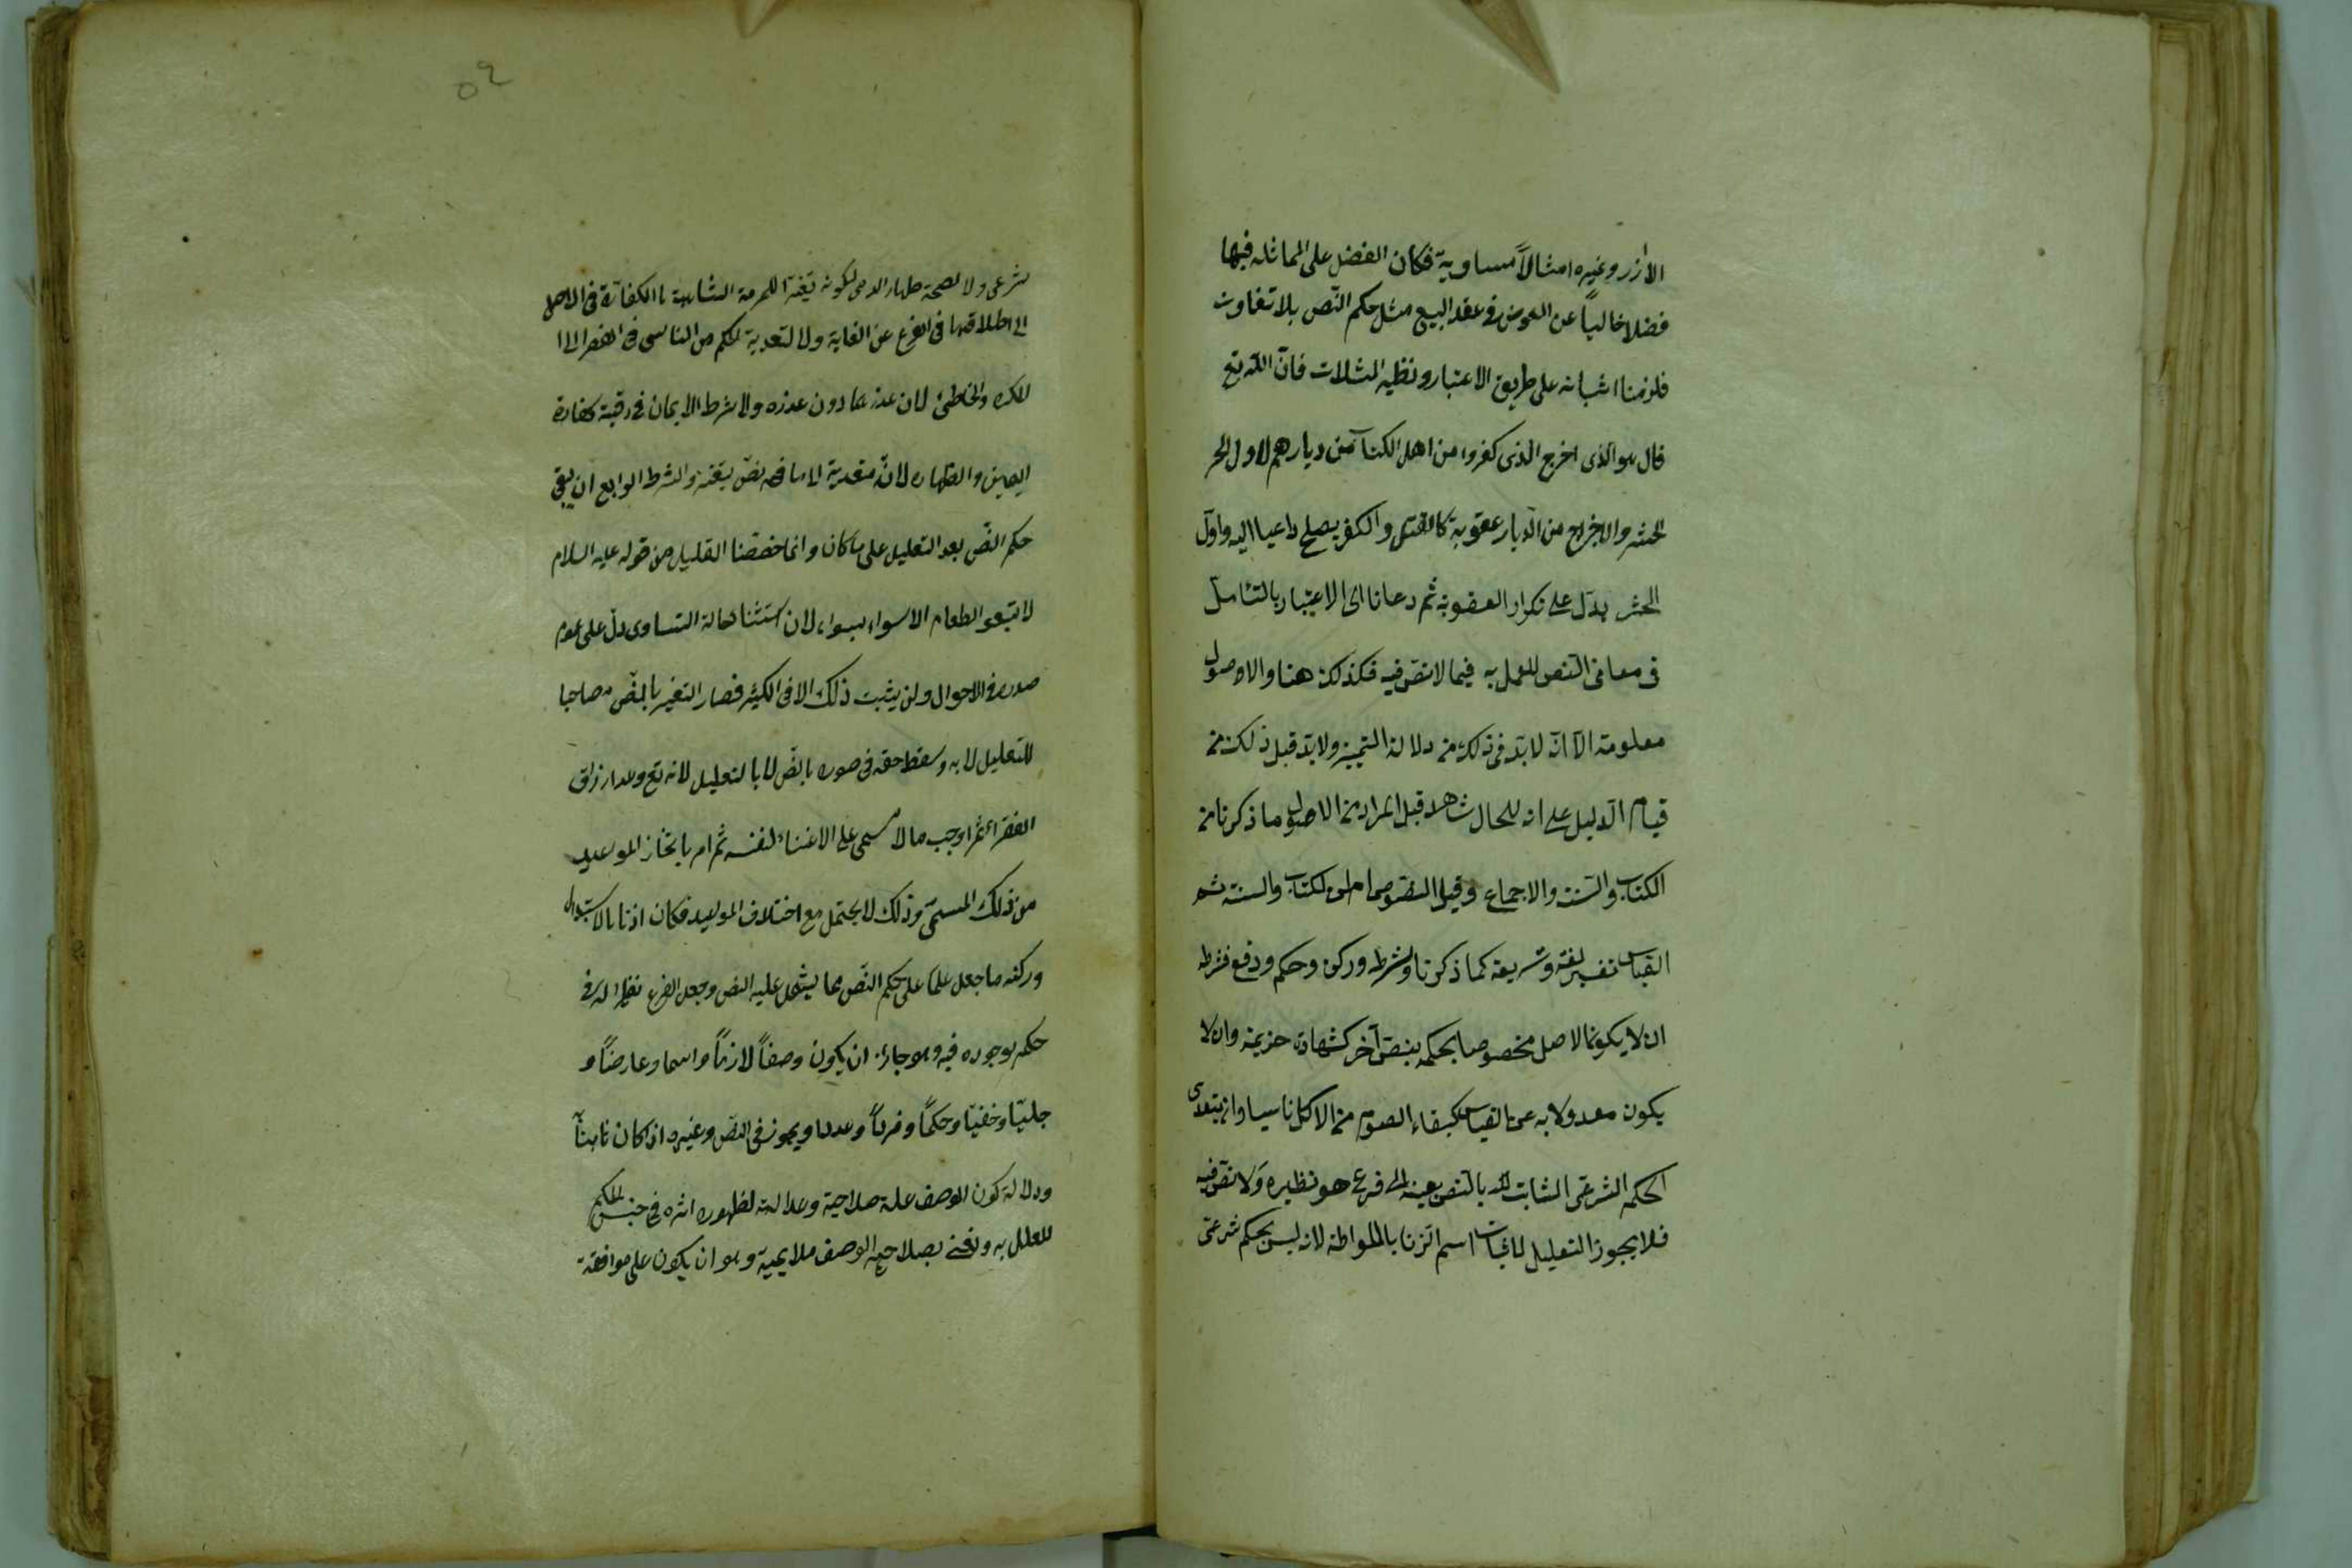 الارز وغيره امثالاً مساوية فكان الفضل على المماثلة فيها
فضلا خالياً عن العوض في عقد البيع مثل حكم النّص بلا تفاوت
فلزمنا اثباته على طريق الاعتبار ونظير المثلات فانّ اللّه تع
قال هو الّذى اخرج الذى كفروا من اهل الكتاب من ديارهم لاول الحر
الحشر والاخراج من الّديار عقوبة كالقتل والكفر يصلح داعيا اليه واوّل
الحشر يدّل على تكرار العقوبة ثم دعانا الى الاعتبار بالتّامل
فى معانى النّص للعمل به فيما لا نصّ فيه فكذلك هنا والاصول
معلومة الّا انّه لابّد فى ذلك من دلالة التميز ولابّد قبل ذلك من
قيام الّدليل على انه للحال شاهد قبل المراد من الاصول ما ذكرنا من
الكتاب والسّنت والاجماع وقيل النّصوص اعنى الكتاب والسنة ثم
القياس تفسير لغة وشريعة كما ذكرنا وشرط وركن وحكم ودفع فشرطه
ان لا يكون الاصل مخصوصا بحكمه بنصّ آخر كشهادة خزيمة وان لا
يكون معدولا به عن القياس كبقاء الصّوم من الاكل ناسيا وان يتعدى
الحكم الشرعّى الثابت بالنّص بعينه الى فرع هو نظيره ولا نصّ فيه
فلا يجوز التعليل لاثبات اسم الّزنا باللواطة لانه ليس بحكم شرعّى
٥٩
شرعى ولا لصحة ظهار الذمى لكونه تغيّرا للحرمة المتناهية بالكفارة فى الاصل
الى اطلاقها فى الفرع عن الغاية ولا لتعدية الحكم من الناسى فى الفطر الى ا
المكره والخاطئ لان عذرهما دون عذره ولا شرط الايمان فى رقبة كفارة
اليمين والظهار لانّه تعدية الى ما فيه نصّ بتغيره والشرط الرابع ان يبقى
حكم النّص بعد التعليل على ما كان وانما خصّصنا القليل من قوله عليه السلام
لا تبيعوا الطعام الا سواء بسواء لان استثناء حالة التساوى دلّ على عموم
صدره فى الاحوال ولن يثبت ذلك الا فى الكثير فصار التغير بالنّص مصاحبا
للتعليل لا به وسقط حقه فى صورة بالنّص لا بالتعليل لانه تع وعد ارزاق
الفقراء ثم اوجب مالا مسمى على الاغنياء لنفسه ثم امر بانجاز المواعيد
من ذلك المسمّى وذلك لا يحتمل مع اختلاف المواعيد فكان اذنا بالاستبدال
وركنه ما جعل علما على حكم النّص مما يشتمل عليه النص وجعل الفرع نظيرا له فى
حكمه بوجوده فيه وهو جائز ان يكون وصفاً لازماً واسما وعارضاً و
جليّا وخفيّا وحكماً وفرداً وعددا ويجوز فى النّص وغيره اذا كان ثابتاً
ودلالة كون الوصف علة صلاحية وعدالته لظهور اثره فى جنس الحكم
المعلل به ونعنى بصلاحية الوصف ملايمته وهو ان يكون على موافقة